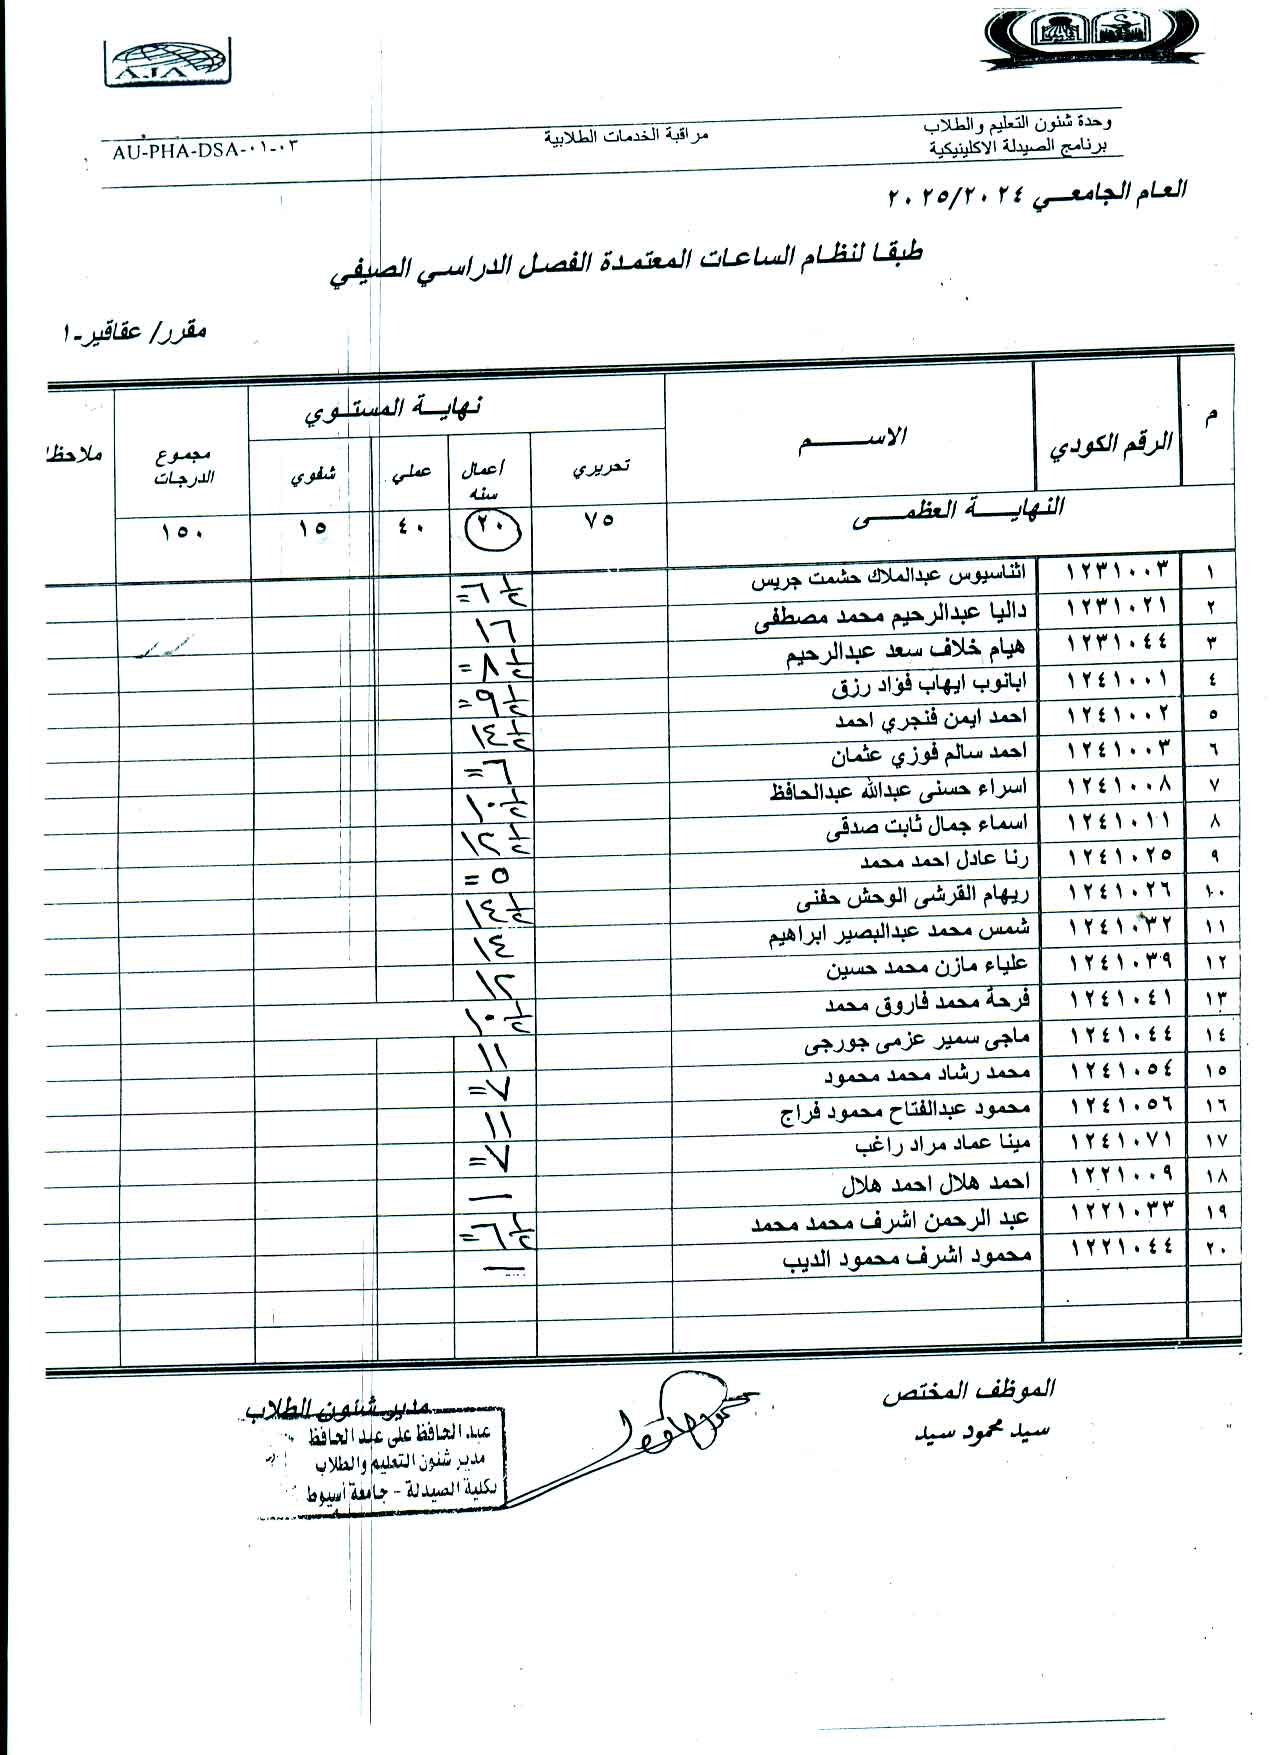 AJA
وحدة شئون التعليم والطلاب
برنامج الصيدلة الاكلينيكية
مراقبة الخدمات الطلابية
AU-PHA-DSA-٠١-٠٣
العام الجامعي ٢٠٢٥/٢٠٢٤
طبقا لنظام الساعات المعتمدة الفصل الدراسي الصيفي
مقرر/ عقاقير-١
م الرقم الكودي الاسم نهاية المستوي مجموع الدرجات ملاحظ
تحريري اعمال سنه عملي شفوي
النهاية العظمى ٧٥ ٢٠ ٤٠ ١٥ ١٥٠
١ ١٢٣١٠٠٣ اثناسيوس عبدالملاك حشمت جريس ٦ ١/٢ =
٢ ١٢٣١٠٢١ داليا عبدالرحيم محمد مصطفى ١٦
٣ ١٢٣١٠٤٤ هيام خلاف سعد عبدالرحيم ٨ ١/٢ =
٤ ١٢٤١٠٠١ ابانوب ايهاب فؤاد رزق ٩ ١/٢ =
٥ ١٢٤١٠٠٢ احمد ايمن فنجري احمد ١٤ ١/٢
٦ ١٢٤١٠٠٣ احمد سالم فوزي عثمان ٦ =
٧ ١٢٤١٠٠٨ اسراء حسنى عبدالله عبدالحافظ ١٠ ١/٢
٨ ١٢٤١٠١١ اسماء جمال ثابت صدقى ١٢ ١/٢
٩ ١٢٤١٠٢٥ رنا عادل احمد محمد ٥ =
١٠ ١٢٤١٠٢٦ ريهام القرشى الوحش حفنى ١٤ ١/٢
١١ ١٢٤١٠٣٢ شمس محمد عبدالبصير ابراهيم ١٤
١٢ ١٢٤١٠٣٩ علياء مازن محمد حسين ١٢
١٣ ١٢٤١٠٤١ فرحة محمد فاروق محمد ١٠ ١/٢
١٤ ١٢٤١٠٤٤ ماجى سمير عزمى جورجى ١١
١٥ ١٢٤١٠٥٤ محمد رشاد محمد محمود ٧ =
١٦ ١٢٤١٠٥٦ محمود عبدالفتاح محمود فراج ١١
١٧ ١٢٤١٠٧١ مينا عماد مراد راغب ٧ =
١٨ ١٢٢١٠٠٩ احمد هلال احمد هلال —
١٩ ١٢٢١٠٣٣ عبد الرحمن اشرف محمد محمد ٦ ١/٢ =
٢٠ ١٢٢١٠٤٤ محمود اشرف محمود الديب —
الموظف المختص
سيد محمود سيد
مدير شئون الطلاب
عبد الحافظ على عبد الحافظ
مدير شئون التعليم والطلاب
بكلية الصيدلة - جامعة أسيوط